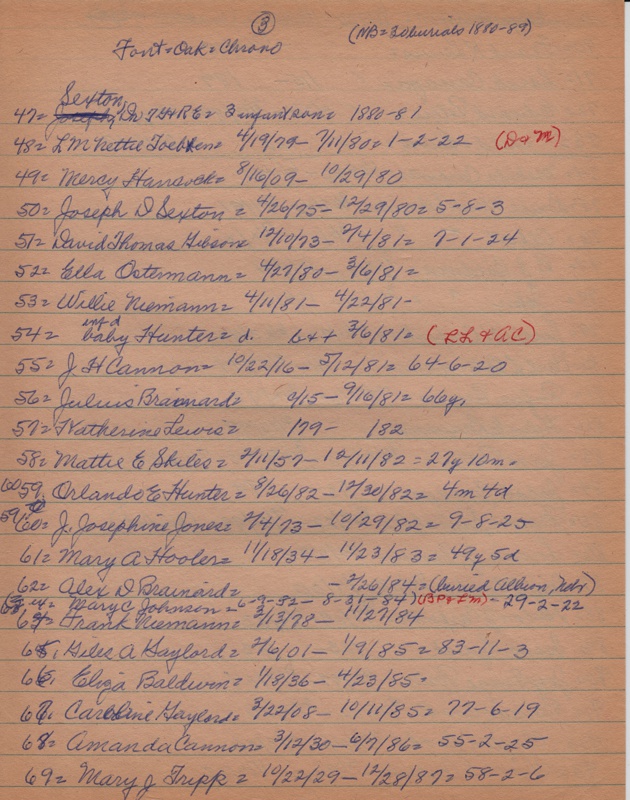 ③
(NB=30 burials 1880-89)
Font=Oak=Chrono
Sexton
47= Joseph, Dr I H & RE= 3 infant sons= 1880-81
48= L M Nettie = 4/19/79- 7/11/80= 1-2-22 (D&M)
49= Mercy Hancock= 8/16/09- 10/29/80
50= Joseph D Sexton= 4/26/75- 12/29/80= 5-8-3
51= David Thomas Gibson= 12/10/73- 2/4/81= 7-1-24
52= Ella Ostermann= 4/27/80- 3/6/81=
53= Willie Niemann= 4/11/81- 4/22/81-
inf d
54= baby Hunter= d. b&+ 3/6/81= (LL & AC)
55= J H Cannon= 10/22/16- 5/12/81= 64-6-20
56= Julius Brainard= c/15- 9/16/81= 66y.
57= Katherine Lewis= /79- /82
58= Mattie E Skiles= 2/11/57- 12/11/82= 27y 10m=
60 59. Orlando E Hunter= 8/26/82- 12/30/82= 4m 4d
59. 60= J. Josephine Jones= 2/4/73- 10/29/82= 9-8-25
61= Mary A Hooler= 11/18/34- 11/23/83= 49y 5d
62= Alex D Brainard= - 2/26/84= (buried Albion, Nebr)
63. Mary C Johnson= 6-9-82- 8-31-84) (BP & Em)- 29-2-22
64= Frank Niemann= 3/13/78- 11/27/84
65. Giles A Gaylord= 2/6/01- 1/9/85= 83-11-3
66. Eliza Baldwin= 1/18/36- 4/23/85=
67. Caroline Gaylord= 3/22/08- 10/11/85= 77-6-19
68= Amanda Cannon= 3/12/30- 6/7/86= 55-2-25
69= Mary J Tripp= 10/22/29- 12/28/87= 58-2-6